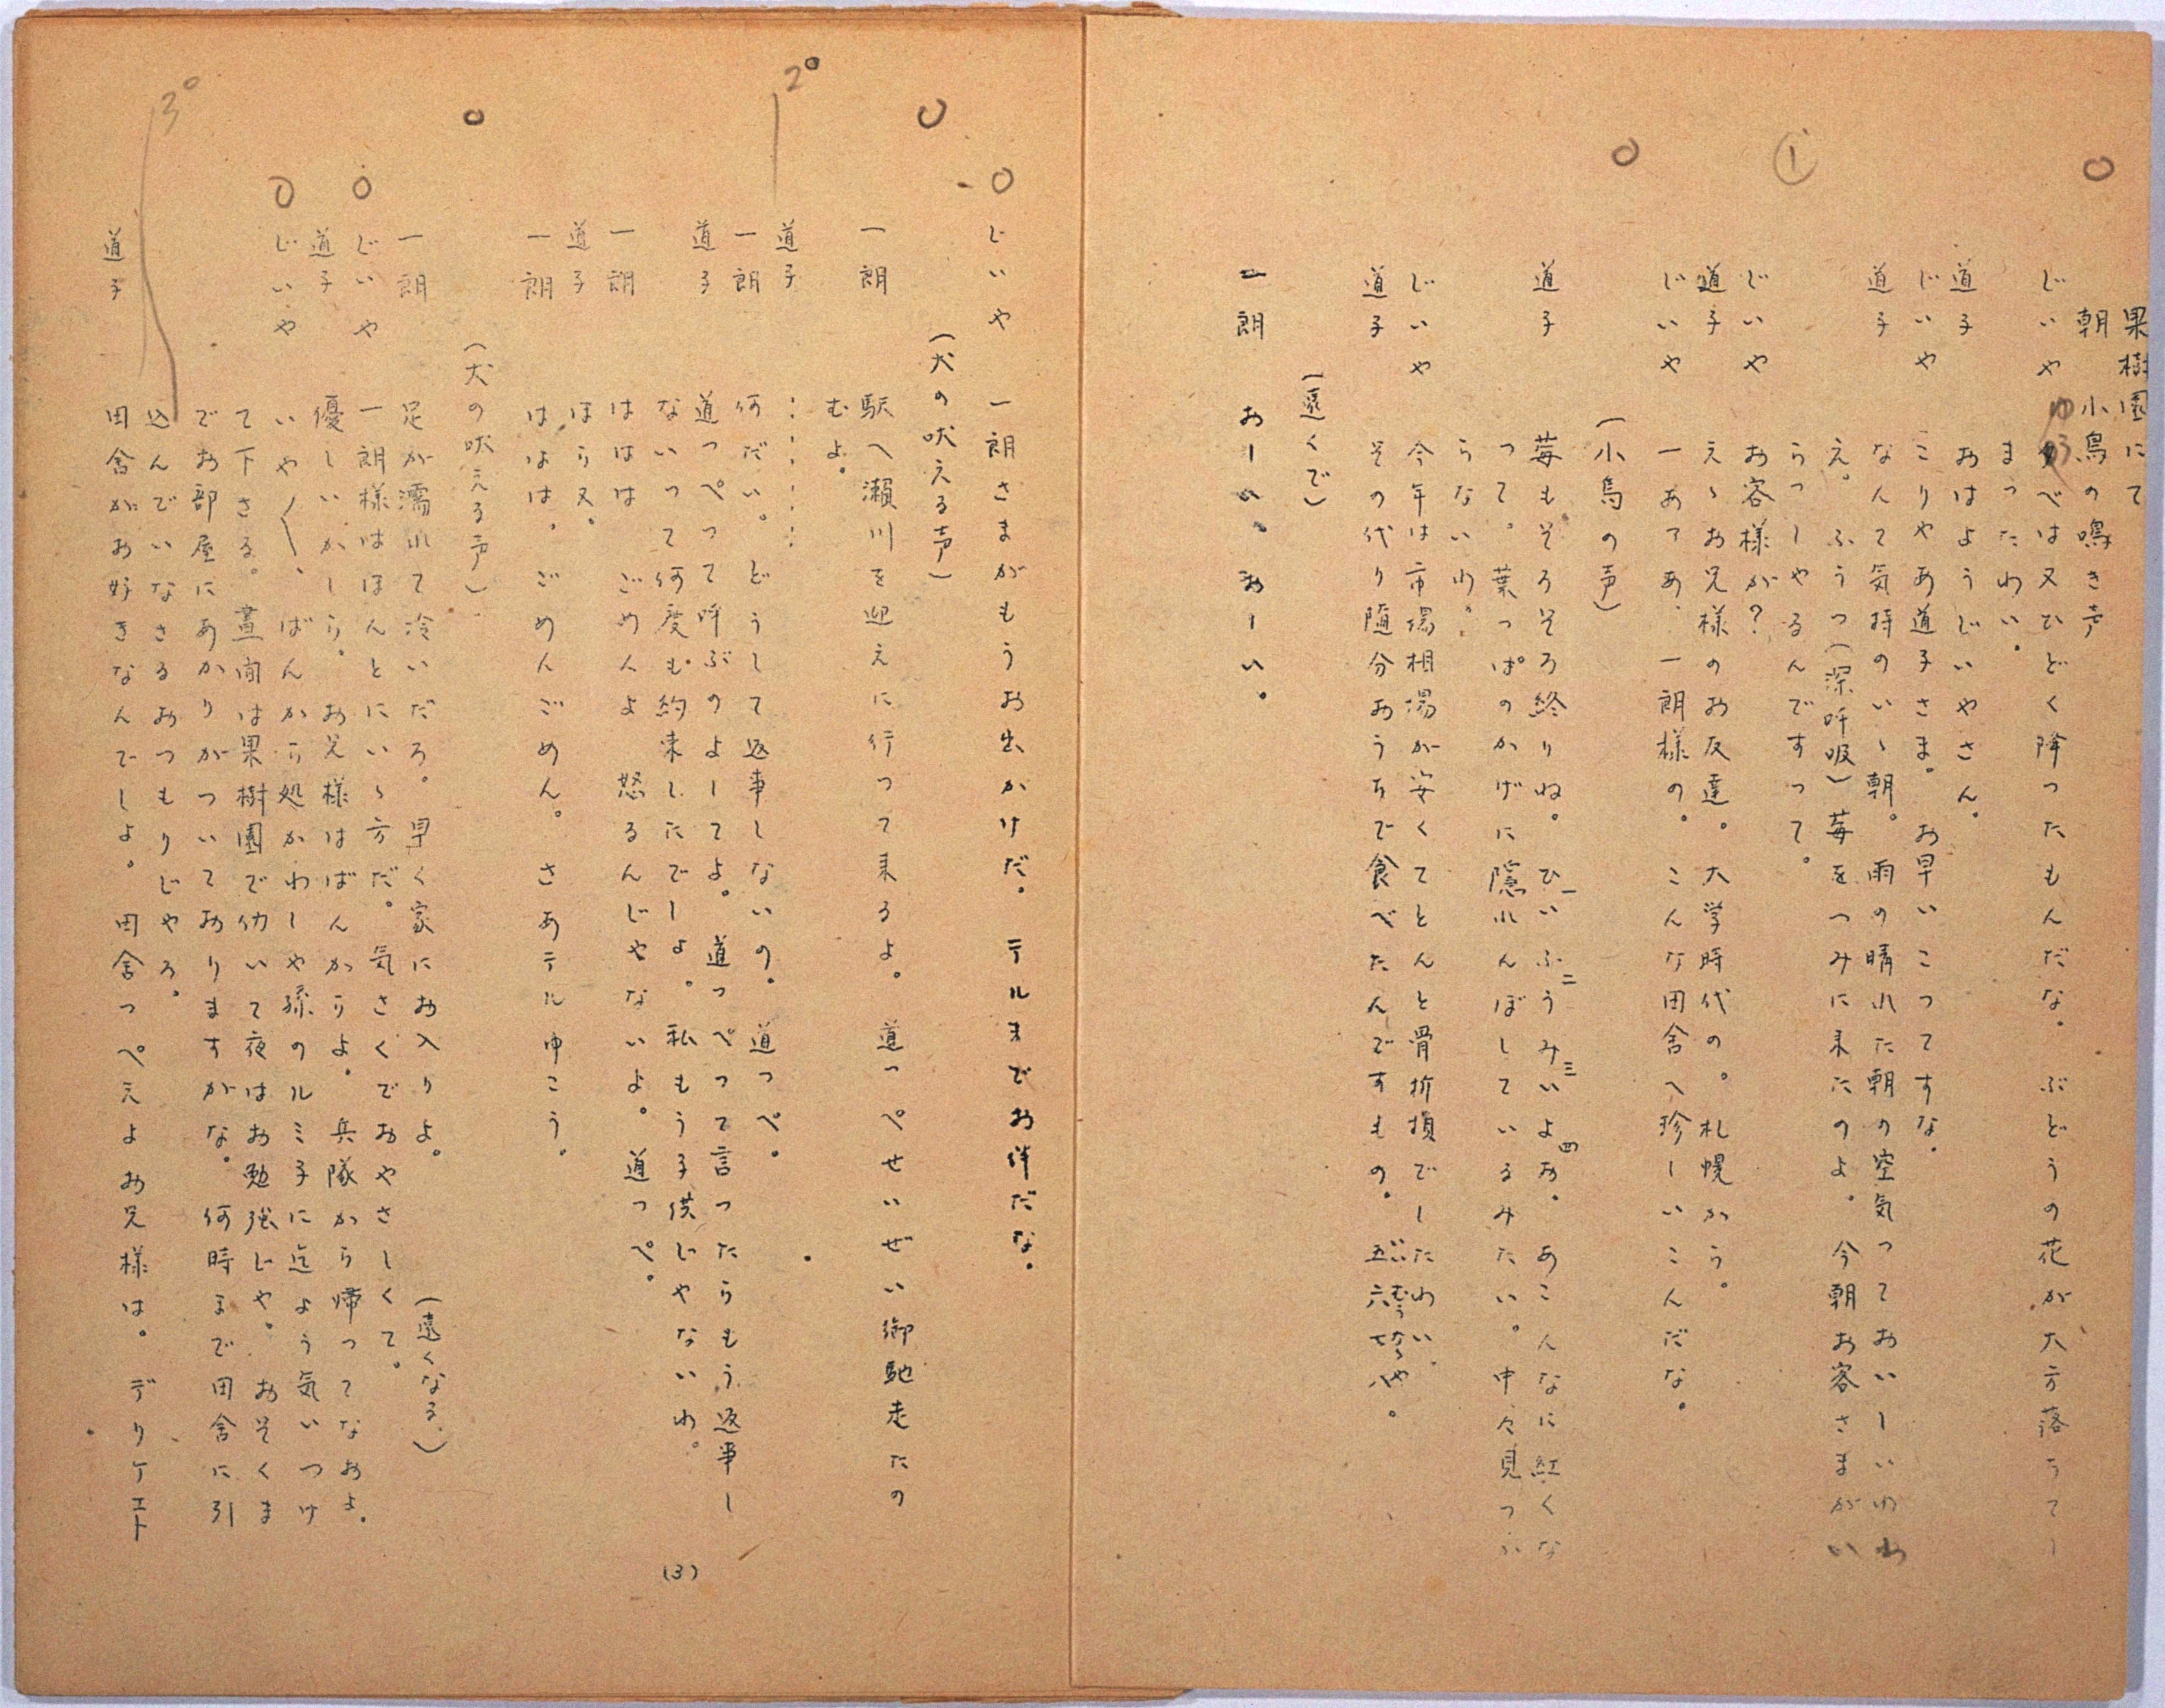 果樹園にて
朝　小鳥の鳴き声
じいや　ゆうべは又ひどく降ったもんだな。ぶどうの花が大方落ちてし
まったわい。
道子　おはようじいやさん。
じいや　こりやあ道子さま。お早いこってすな。
道子　なんて気持のいゝ朝。雨の晴れた朝の空気っておいしいわね
え。ふうっ（深呼吸）苺をつみに来たのよ。今朝お客さまがい
らっしやるんですって。
じいや　お客様が？
道子　えゝお兄様のお友達。大学時代の。札幌から。
じいや　一あァあ、一朗様の。こんな田舎へ珍しいこんだな。
（小鳥の声）
道子　苺もそろそろ終りね。ひいふうみいよお。あこんなに紅くな
一　二　三　四
って。葉っぱのかげに隠れんぼしているみたい。中々見つか
らないわ。
じいや　今年は市場相場が安くてとんと骨折損でしたわい。
道子　その代り随分おうちで食べたんですもの。五六七八。
（遠くで）
一朗　おーい。おーい。
じいや　一朗さまがもうお出かけだ。テルまでお伴だな。
（犬の吠える声）
一朗　駅へ瀬川を迎えに行って来るよ。道っぺせいぜい御馳走たの
むよ。
道子　……
一朗　何だい。どうして返事しないの。道っぺ。
道子　道っぺって呼ぶのよしてよ。道っぺって言ったらもう返事し
ないって何度も約束したでしよ。私もう子供じやないわ。
一朗　ははは　ごめんよ　怒るんじやないよ。道っぺ。
道子　ほら又。
一朗　ははは。ごめんごめん。さあテルゆこう。
（犬の吠える声）
（遠くなる）
一朗　足が濡れて冷いだろ。早く家にお入りよ。
じいや　一朗様はほんとにいゝ方だ。気さくでおやさしくて。
道子　優しいかしら。お兄様はばんからよ。兵隊から帰ってなおよ。
じいや　いや〱、ばんから処かわしや孫のルミ子に迄よう気いつけ
て下さる。昼間は果樹園で仂いて夜はお勉強じや。おそくま
でお部屋にあかりがついておりますがな。何時まで田舎に引
込んでいなさるおつもりじやろ。
道子　田舎がお好きなんでしよ。田舎っぺえよお兄様は。デリケエト
(3)
①
2°
3°